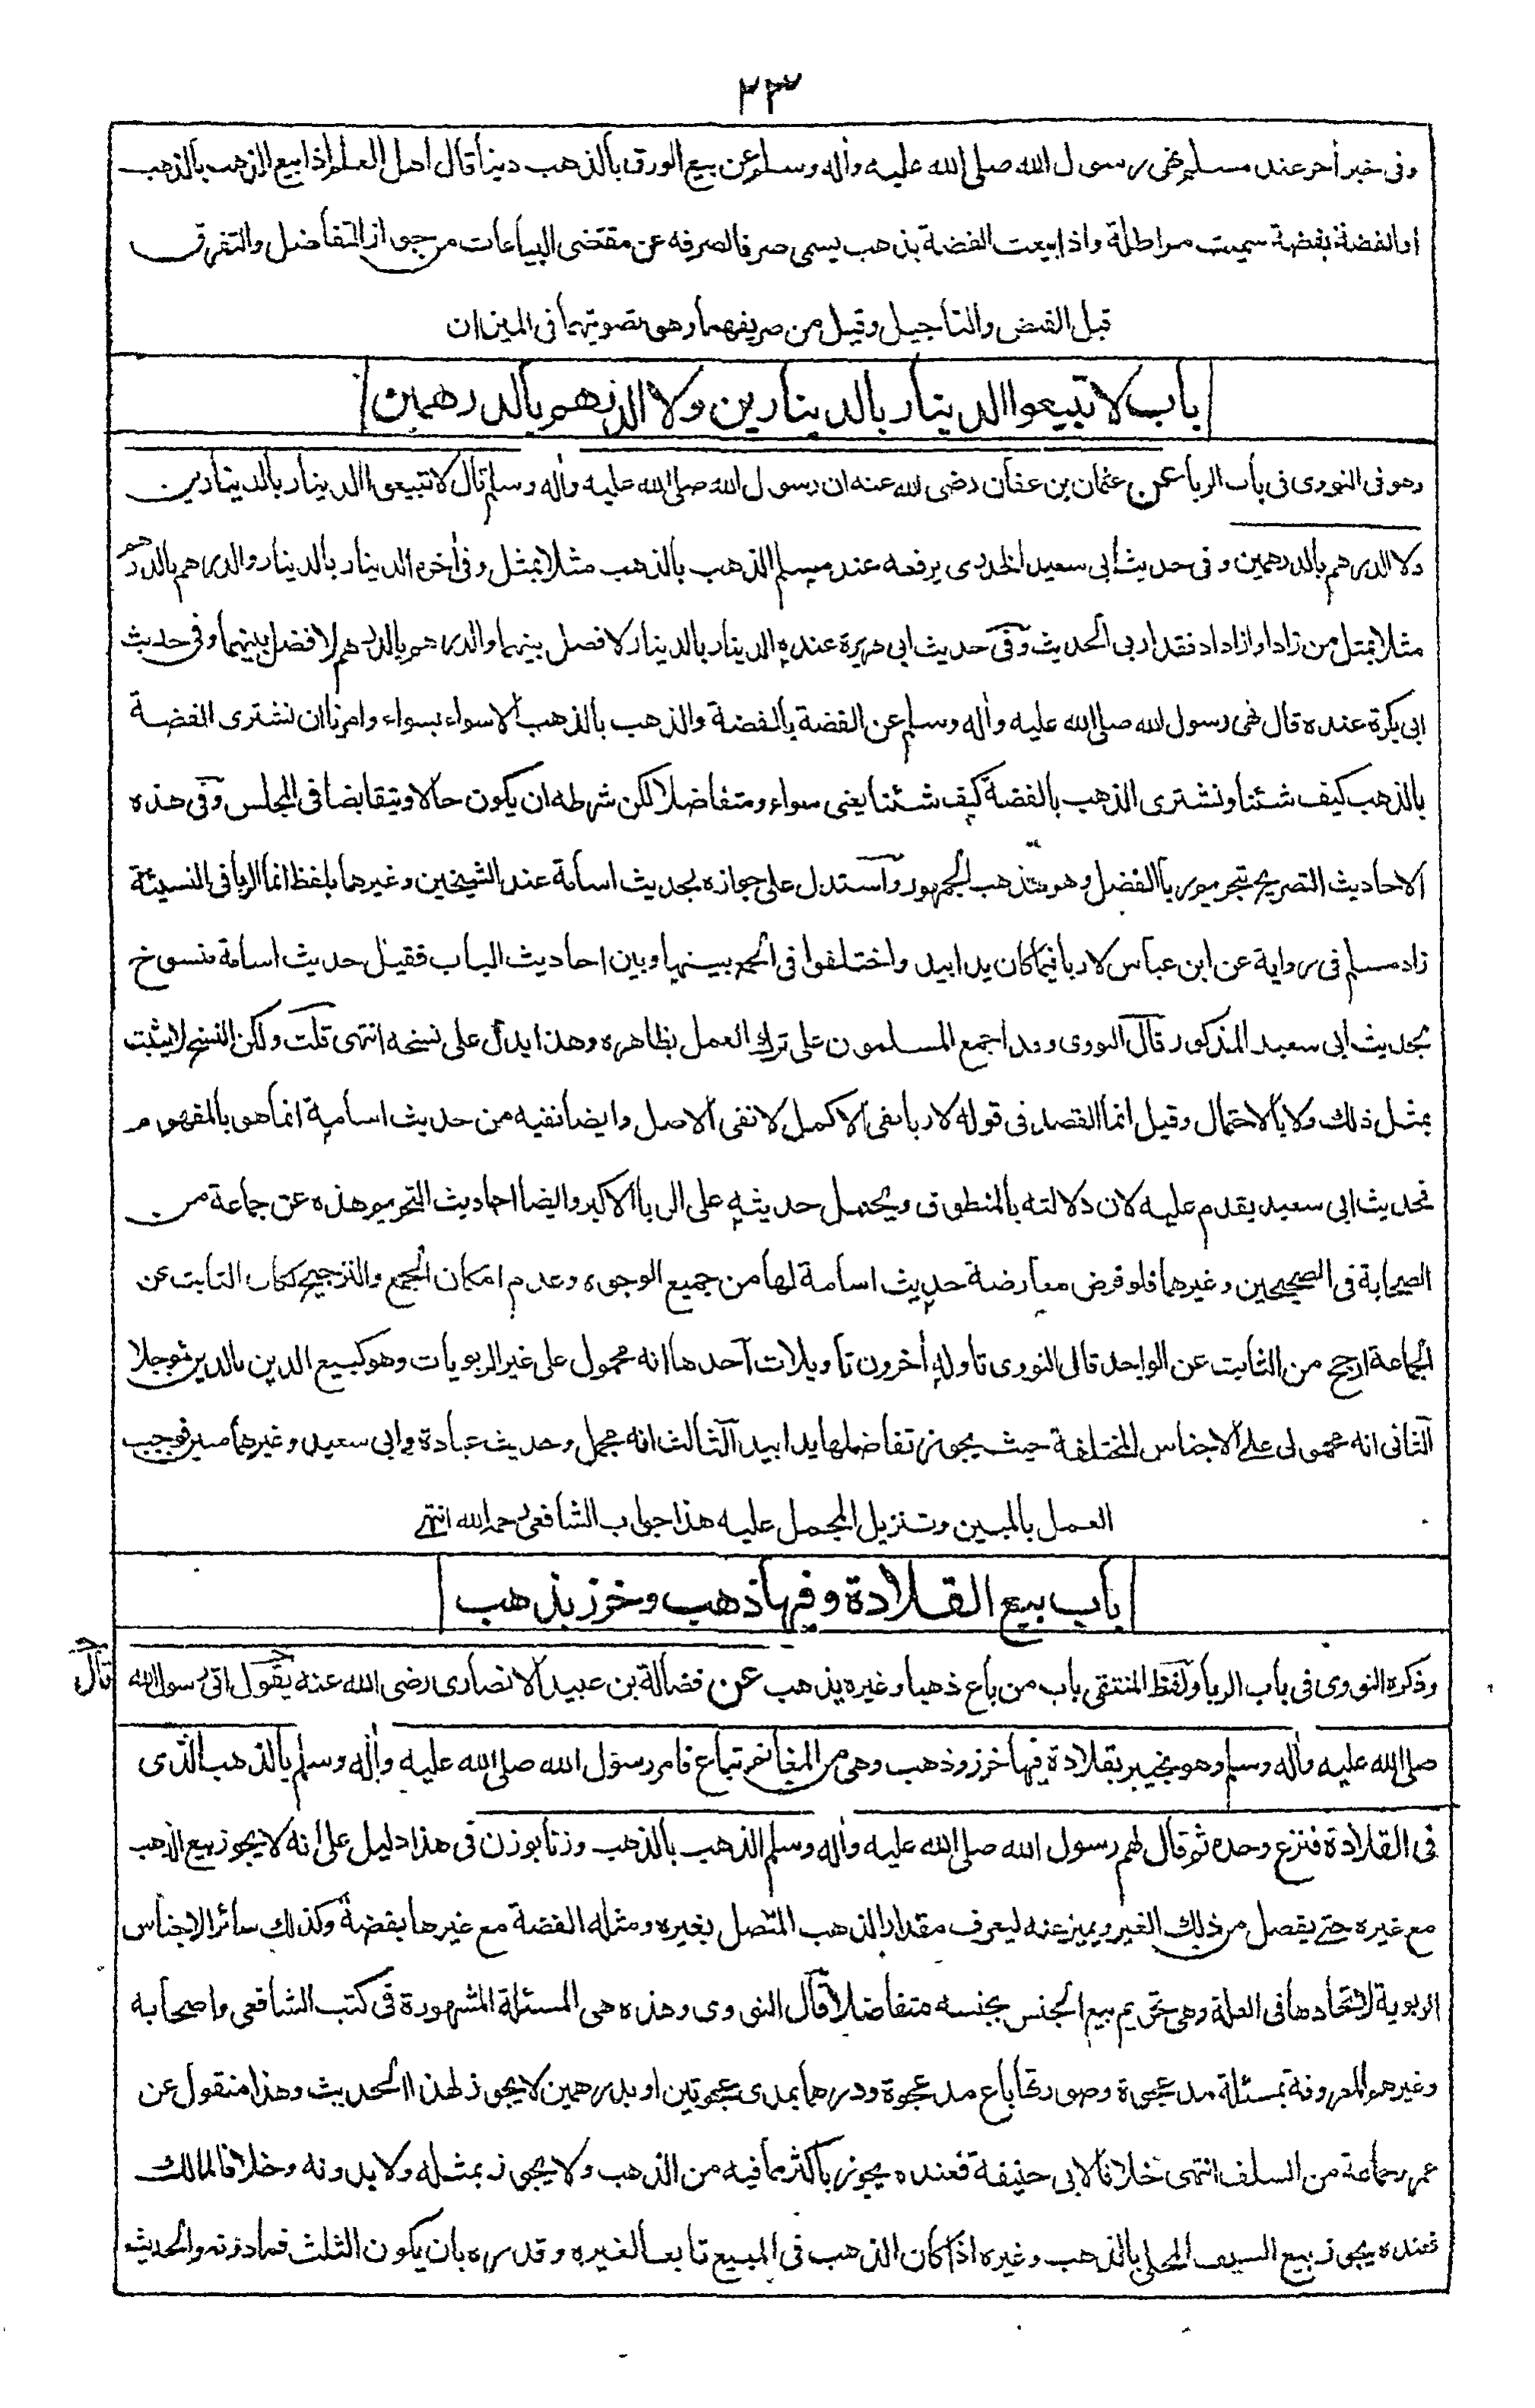 ٢٣
وفى خبر أخر عند مسلم نهى رسول الله صلى الله عليه وأله وسلم عن بيع الورق بالذهب دينا قال اهل العلم اذا بيع الذهب بالذهب
او الفضة بفضة سميت مراطلة واذا بيعت الفضة بذهب يسمى صرفا لصرفه عن مقتضى البياعات من جواز التفاضل والتفرق
قبل القبض والتاجيل وقيل من صريفهما وهو تصويتهما فى الميزان
باب لا تبيعوا الدينار بالدينارين ولا الدرهم بالدرهمين
وهو فى النووى فى باب الربا عن عثمان بن عفان رضى الله عنه ان رسول الله صلى الله عليه وأله وسلم قال لا تبيعوا الدينار بالدينارين
ولا الدرهم بالدرهمين وفى حديث أبى سعيد الخدرى يرفعه عند مسلم الذهب بالذهب مثلا بمثل وفى أخره الدينار بالدينار والدرهم بالدرهم
مثلا بمثل من زاد او ازداد فقد اربى الحديث وفى حديث ابى هريرة عنده الدينار بالدينار لا فضل بينهما والدرهم بالدرهم لا فضل بينهما وفى حديث
ابى بكرة عنده قال نهى رسول الله صلى الله عليه وأله وسلم عن الفضة بالفضة والذهب بالذهب الا سواء بسواء وامرنا ان نشترى الفضة
بالذهب كيف شئنا ونشترى الذهب بالفضة كيف شئنا يعنى سواء ومتفاضلا لكن شرطه ان يكون حالا ويتقابضا فى المجلس وفى هذه
الاحاديث التصريح بتحريم ربا الفضل وهو مذهب الجمهور واستدل على جوازه بحديث اسامة عند الشيخين وغيرهما بلفظ انما الربا فى النسيئة
زاد مسلم فى رواية عن ابن عباس لا ربا فيما كان يدا بيد واختلفوا فى الجمع بينهما وبين احاديث الباب فقيل حديث اسامة منسوخ
بحديث ابى سعيد المذكور قال النووى وقد اجمع المسلمون على ترك العمل بظاهره وهذا يدل على نسخه انتهى قلت ولكن النسخ لا يثبت
بمثل ذلك ولا بالاحتمال وقيل انما القصد فى قوله لا ربا نفى الاكمل لا نفى الاصل وايضا نفيه من حديث اسامة انما هو بالمفهوم
فحديث ابى سعيد يقدم عليه لان دلالته بالمنطوق ويحمل حديثه على الربا الاكبر وايضا احاديث التحريم هذه عن جماعة من
الصحابة فى الصحيحين وغيرهما فلو فرض معارضة حديث اسامة لها من جميع الوجوه وعدم امكان الجمع والترجيح لكان الثابت عن
الجماعة ارجح من الثابت عن الواحد قال النووى تاوله أخرون تأويلات احدها انه محمول على غير الربويات وهو كبيع الدين بالدين مؤجلا
الثانى انه محمول على الاجناس المختلفة حيث يجوز تفاضلها يدا بيد الثالث انه مجمل وحديث عبادة وابى سعيد وغيرهما مبين فوجب
العمل بالمبين وتنزيل المجمل عليه هذا جواب الشافعى رحمه الله انتهى
باب بيع القلادة وفيها ذهب وخرز بذهب
وذكره النووى فى باب الربا ولفظ المنتقى باب من باع ذهبا وغيره بذهب عن فضالة بن عبيد الانصارى رضى الله عنه يقول اتى رسول الله
قال
صلى الله عليه وأله وسلم وهو بخيبر بقلادة فيها خرز وذهب وهى من المغانم تباع فامر رسول الله صلى الله عليه وأله وسلم بالذهب الذى
فى القلادة فنزع وحده ثم قال لهم رسول الله صلى الله عليه وأله وسلم الذهب بالذهب وزنا بوزن فى هذا دليل على انه لا يجوز بيع الذهب
مع غيره حتى يفصل من ذلك الغير ويميز عنه ليعرف مقدار الذهب المتصل بغيره ومثله الفضة مع غيرها بفضة وكذلك سائر الاجناس
الربوية لاتحادها فى العلة وهى تحريم بيع الجنس بجنسه متفاضلا قال النووى وهذه هى المسئلة المشهورة فى كتب الشافعى واصحابه
وغيرهم المعروفة بمسئلة مد عجوة وصورتها باع مد عجوة ودرهما بمدى عجوتين او بدرهمين لا يجوز لهذا الحديث وهذا منقول عن
عمر وجماعة من السلف انتهى خلافا لابى حنيفة فعنده يجوز باكثر مما فيه من الذهب ولا يجوز بمثله ولا بدونه وخلافا لمالك
فعنده يجوز بيع السيف المحلى بالذهب وغيره اذا كان الذهب فى المبيع تابعا لغيره وقدره بان يكون الثلث فمادونه والحديث